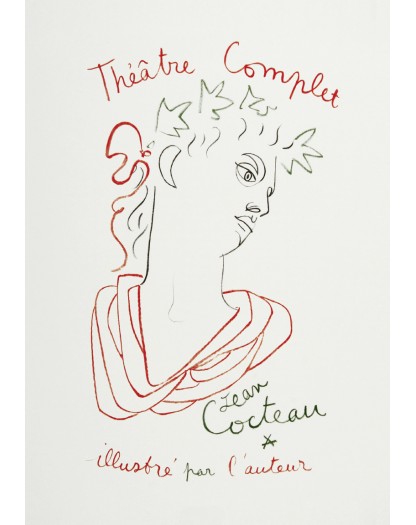 Théâtre Complet
Jean
Cocteau
illustré par l'auteur